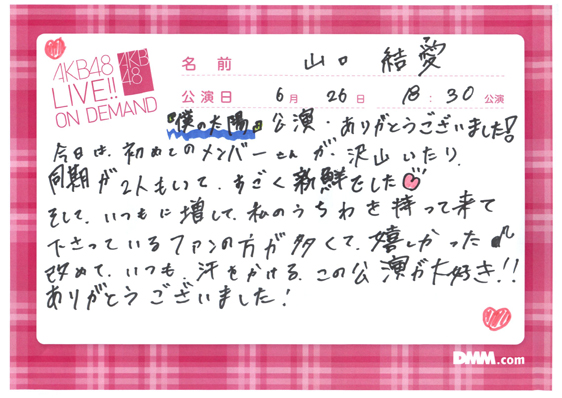 AKB48
LIVE!!
ON DEMAND
AKB
48
名前 山口 結愛
公演日 6月 26日 18:30公演
『僕の太陽』公演・ありがとうございました!
今日は、初めてのメンバーさんが、沢山いたり、
同期が2人もいて、すごく新鮮でした
そして、いつもに増して、私のうちわを持って来て
下さっているファンの方が多くて、嬉しかった♪
改めて、いつも、汗をかける、この公演が大好き!!
ありがとうございました!
DMM.com